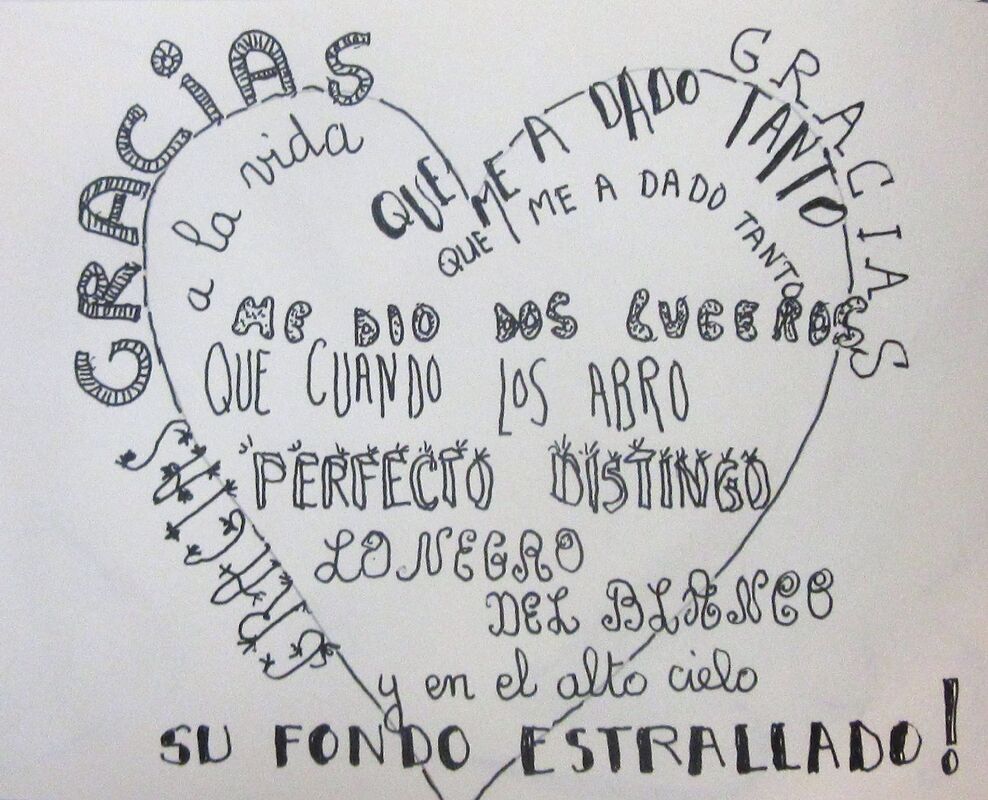 GRACIAS
a la vida
QUE ME A DADO TANTO
GRACIAS
QUE ME A DADO TANTO
ME DIO DOS LUCEROS
QUE CUANDO LOS ABRO
PERFECTO DISTINGO
LO NEGRO
DEL BLANCO
GRACIAS
y en el alto cielo
SU FONDO ESTRALLADO!